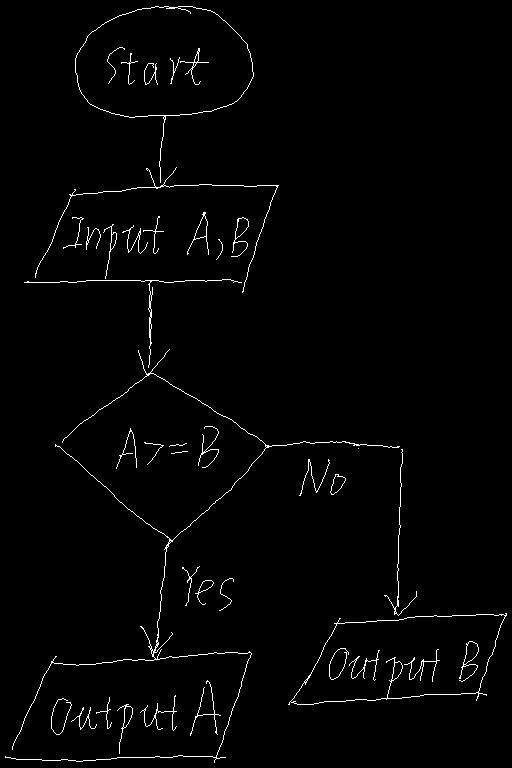 Start
Input A,B
A>=B
No
Yes
Output B
Output A